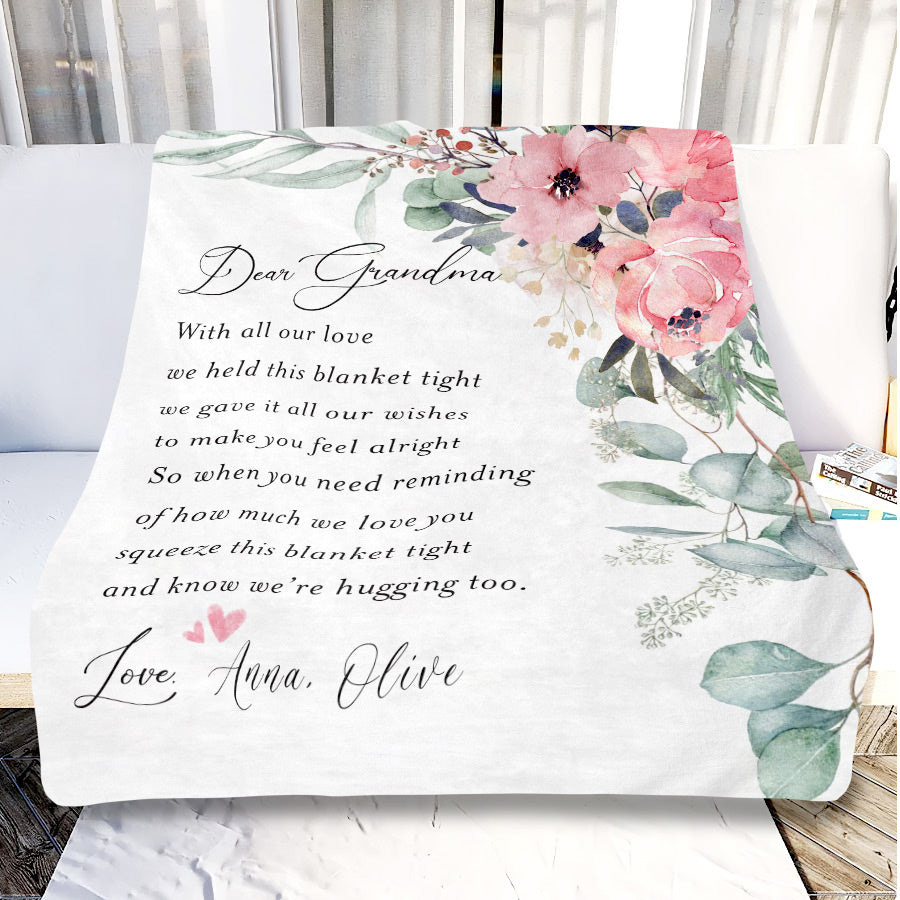 Dear Grandma
With all our love
we held this blanket tight
we gave it all our wishes
to make you feel alright
So when you need reminding
of how much we love you
squeeze this blanket tight
and know we're hugging too.
Love, Anna, Olive